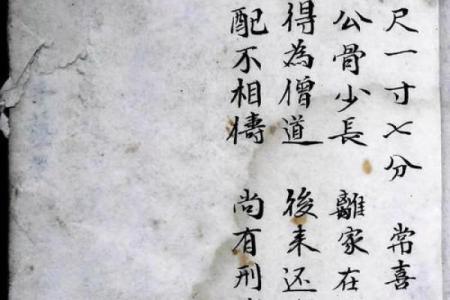 尺一寸七分 常喜
公骨少長 離家在
得為僧道 後来还
配不相犄 尚有刑